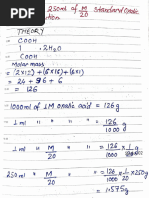 250ml of M/20 Standard Oxalic
THEORY
COOH
| . 2H₂O
COOH
Molar mass
= (2×12)+(6×16)+(6×1)
= 24 + 96 + 6
= 126
1000ml of 1M oxalic acid = 126g
1 ml " " " = 126/1000 g
1 ml " M/20 " " = 126/1000 × 1/20
250 ml " M/20 " " = 126/1000 × 1/20 × 250
= 1.575g